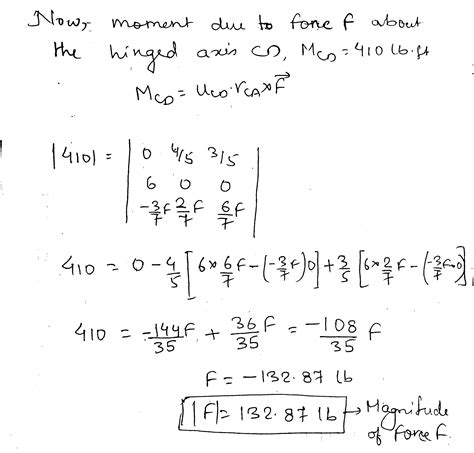 Now, moment due to force F about
the hinged axis CD, M_CD = 410 lb.ft
M_CD = u_CD · r_CA × F⃗
|410| = | 0 4/5 3/5 |
| 6 0 0 |
| -3/7 F 2/7 F 6/7 F |
410 = 0 - 4/5 [6 × 6/7 F - (-3/7 F) 0] + 3/5 [6 × 2/7 F - (-3/7 F × 0)]
410 = -144F/35 + 36F/35 = -108/35 F
F = -132.87 lb
|F| = 132.87 lb → Magnitude
of force F.